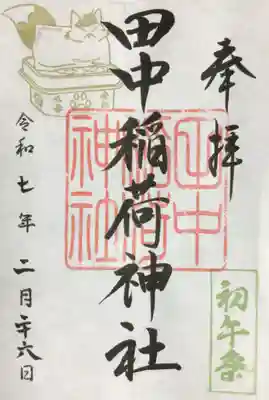 奉拝
初午祭
田中稲荷神社
田中稲荷神社
令和七年二月二十六日